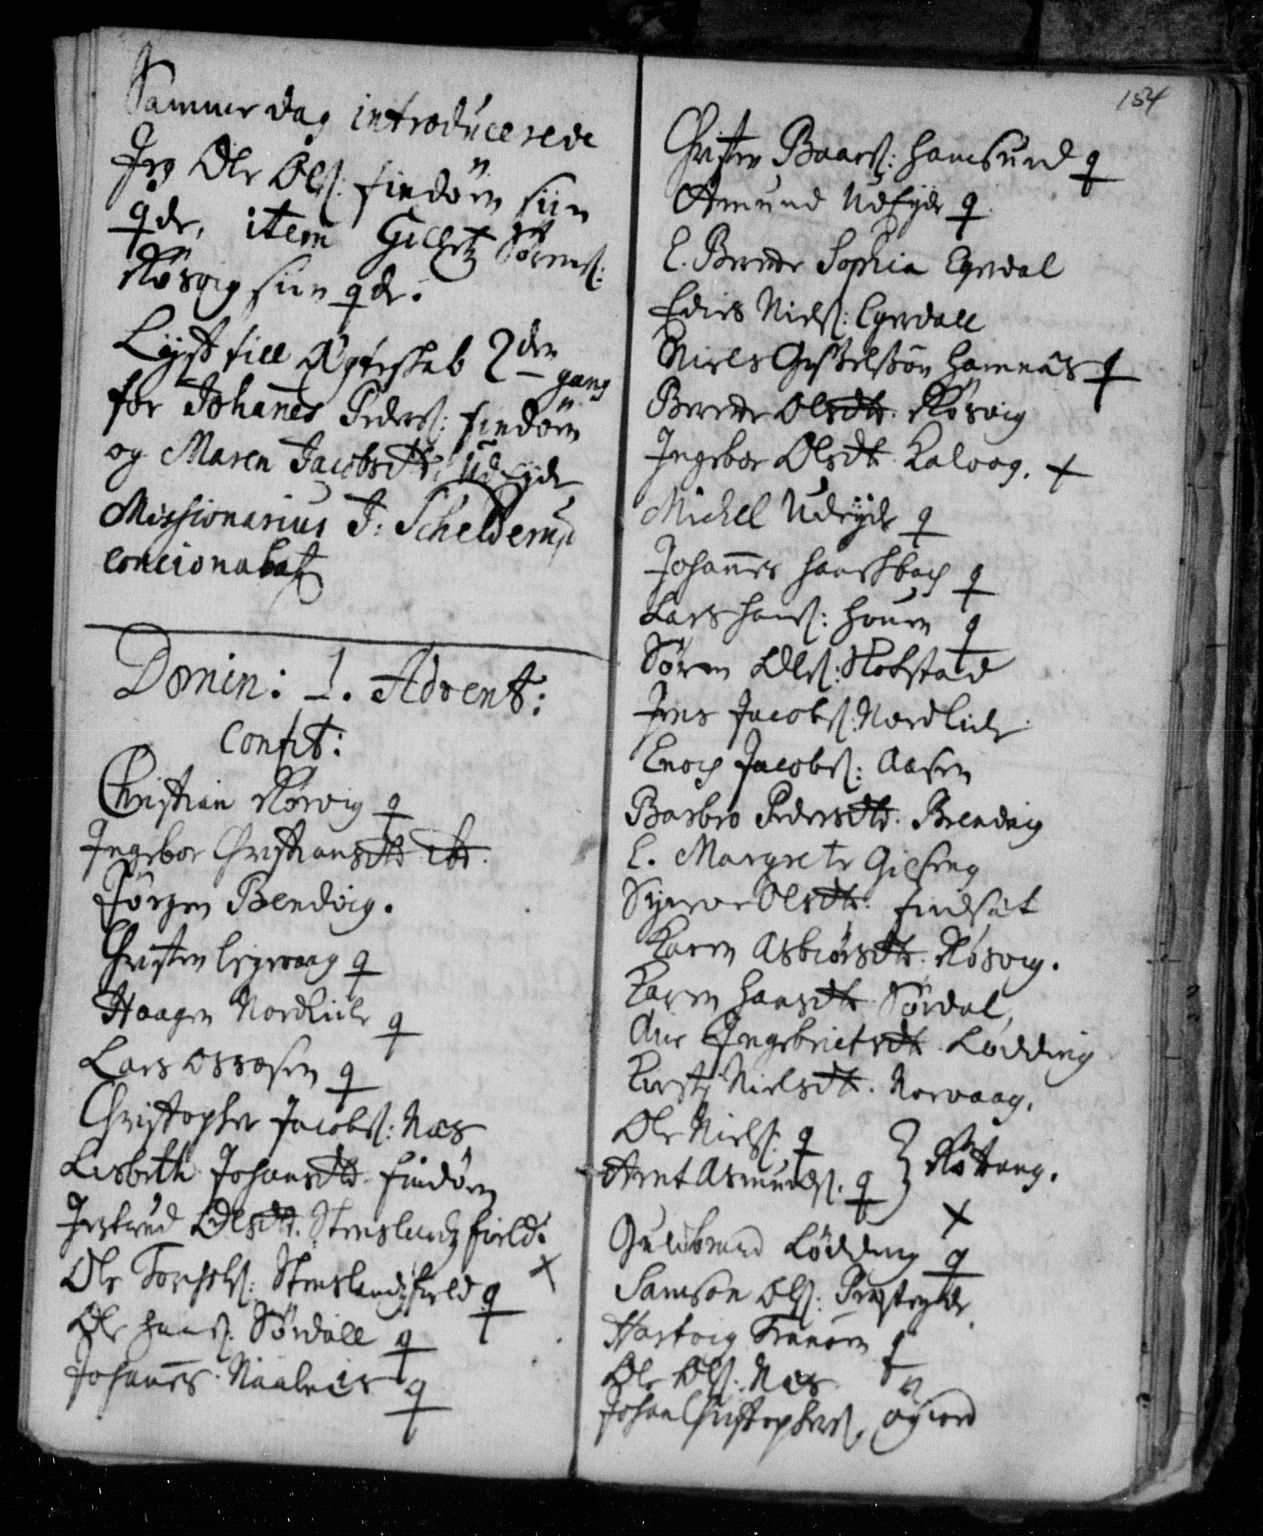 Samme dag introducerede
Jeg Ole Ols: Findøen siin
qde, item Gillitz Sørens:
Røsvig siin qde.
Lyst till Ægteskab 2den gang
for Johanes Peders: Findøen
og Maren Jacobsdtr: Udeyde
Missionarius J: Schelderup
concionabat
Domin: 1. Advent:
Confit:
Christian Rørvig q
Ingebor Christiansdtr ibd.
Jørgen Bendvig.
Christen Leqvaag q
Haagen Nordlide q
Lars q
Christopher Jacobs: Næs
Lisbeth Johansdtr Findøen
Ingebred Olsdtr. Stenslandsfield.
Ole Torchels: Stenslandsfield q
Ole Hans: Sørdall q
Johanes Naalnes q
154
Christen Baars: Hamsund q
Amund Udeyde q
E. Berette Sophia Egedal
Edies Niels: Egedall
Niels Giertelssøn Hamnæs q
Berette Olsdtr. Røsvig
Ingebor Olsdtr Kalvog.
Michel Udeyde q
Johannes Haarsbach q
Lars Hans: Houen q
Søren Ols: Robstad
Jens Jacobs: Nordlide
Enoch Jacobs: Aasen
Barbro Pedersdtr. Brendvig
E. Margrete Gicseng
Synnove Olsdtr. Findsæt
Karen Asbiørsdtr. Røsvig.
Karen Hansdtr Sørdal
Ane Ingebrietsdtr Lødding
Kirsti Nielsdtr. Norvaag.
Ole Niels: q
Arnt Asmunds. q } Røttang.
Guldbrand Lødding q
Samson Ols: Presteyde
Hartvig Tranøen q
Ole Ols: Næs
Johan Christophers. Øgiord